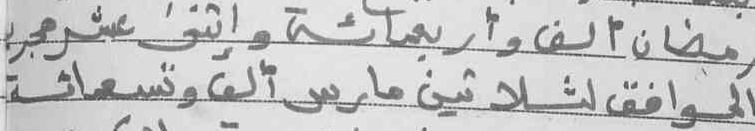 رمضان ألف وأربعمائة وإثنى عشر هجر
الموافق لثلاثين مارس ألف وتسعمائة